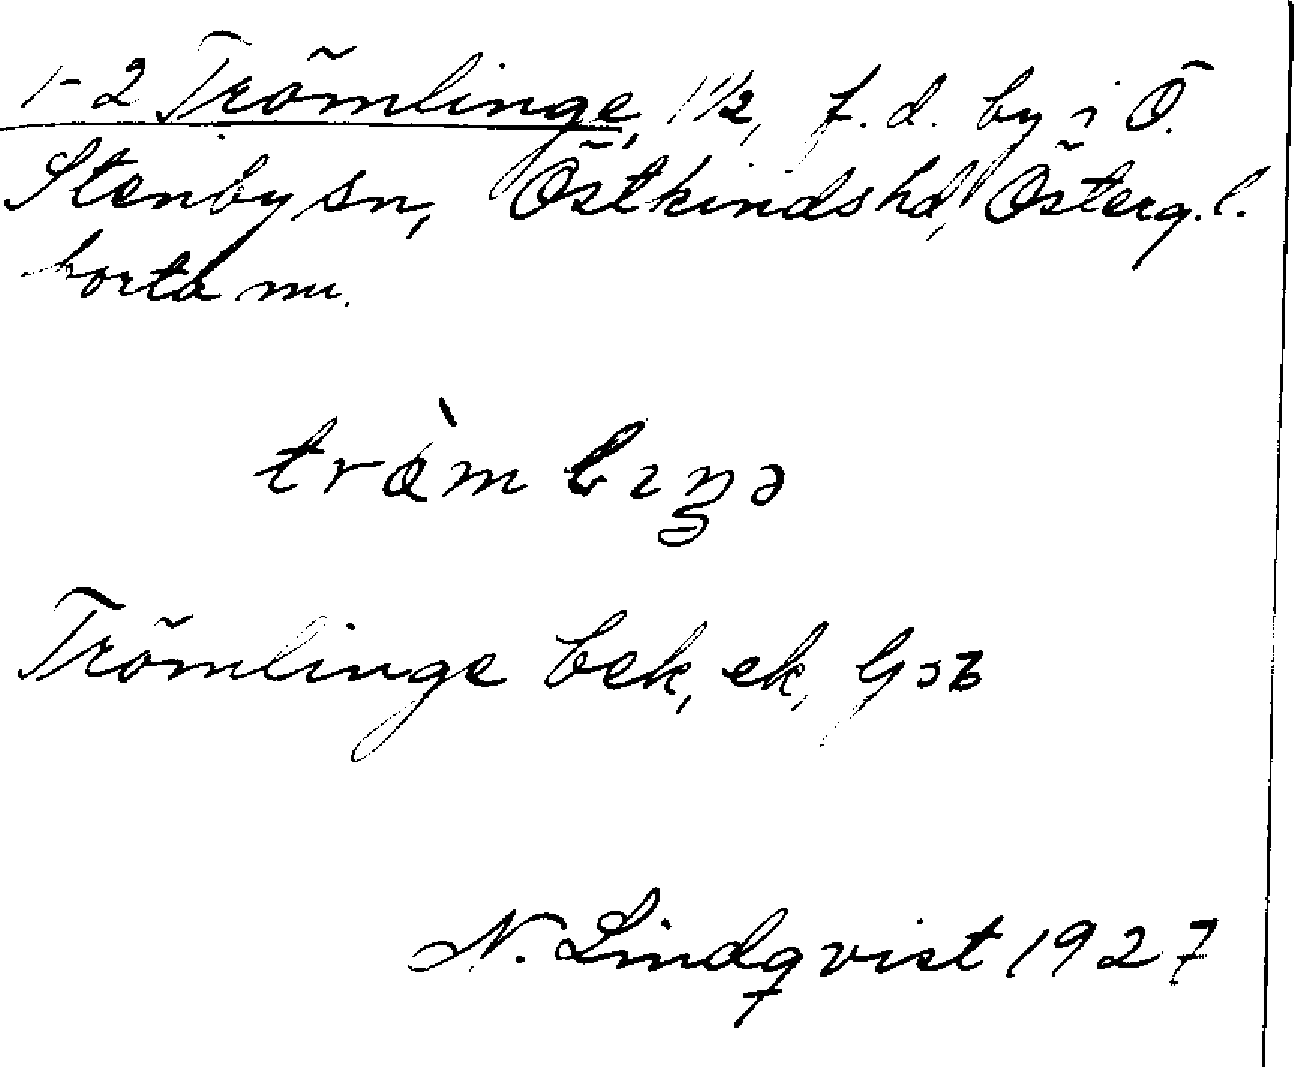 1-2 Trömlinge, 1 1/2, f. d. by i Ö.
Stenby sn, Östkinds hd, Österg. l.
borta nu.
Trömlinge bek, ek,
N. Lindqvist 1927